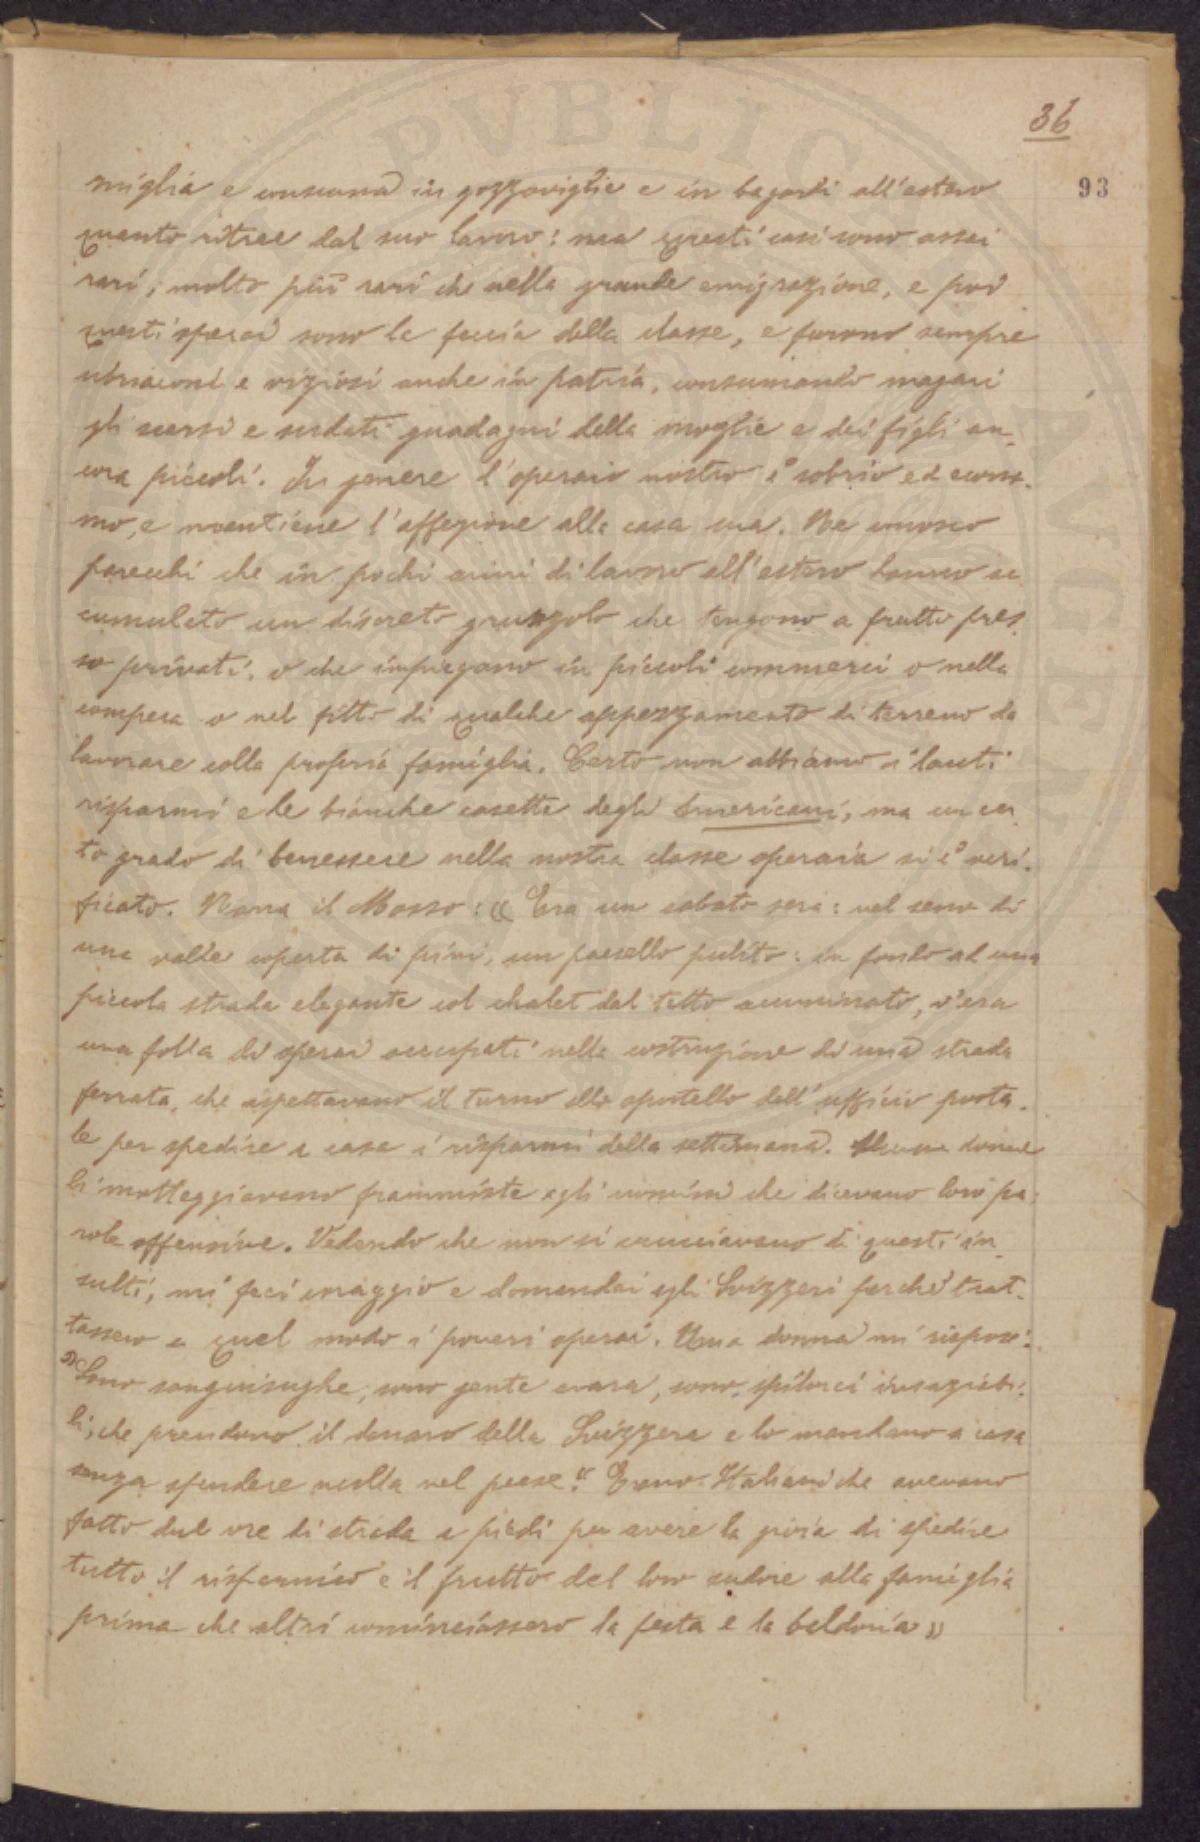 36
93
miglia e consuma in gozzoviglie e in bagordi all'estero
quanto ritrae dal suo lavoro: ma questi casi sono assai
rari, molto più rari che nella grande emigrazione, e poi
questi operai sono la feccia della classe, e furono sempre
ubriaconi e viziosi anche in patria, consumando magari
gli scarsi e sudati guadagni della moglie e dei figli an-
cora piccoli. In genere l'operaio nostro è sobrio ed econo-
mo, e mantiene l'affezione alla casa sua. Ne conosco
parecchi che in pochi anni di lavoro all'estero hanno ac
cumulato un discreto gruzzolo che tengono a frutto pres
so privati, o che impiegano in piccoli commerci o nella
compera o nel fitto di qualche appezzamento di terreno da
lavorare colla propria famiglia. Certo non abbiamo i lauti
risparmi e le bianche casette degli Americani, ma un cer
to grado di benessere nella nostra classe operaia si è veri-
ficato. Narra il Mosso: « Era un sabato sera: nel seno di
una valle coperta di pini, un paesello pulito: in fondo ad una
piccola strada elegante col chalet dal tetto acuminato, v'era
una folla di operai occupati nella costruzione di una strada
ferrata, che aspettavano il turno allo sportello dell'ufficio posta-
le per spedire a casa i risparmi della settimana. Alcune donne
li motteggiavano frammiste agli uomini che dicevano loro pa-
role offensive. Vedendo che non si crucciavano di questi in-
sulti, mi feci coraggio e domandai agli Svizzeri perchè trat-
tassero a quel modo i poveri operai. Una donna mi rispose:
"Sono sanguisughe, sono gente avara, sono spilorci insaziabi-
li, che prendono il denaro della Svizzera e lo mandano a casa
senza spendere nulla nel paese." Erano Italiani che avevano
fatto due ore di strada a piedi per avere la gioia di spedire
tutto il risparmio e il frutto del loro sudore alla famiglia
prima che altri cominciassero la festa e la baldoria »